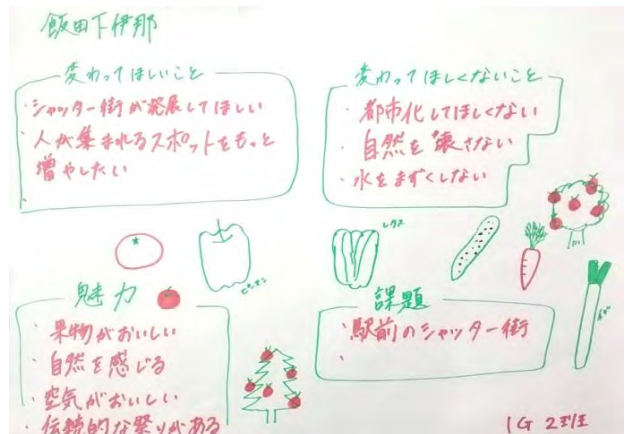 飯田下伊那
変わってほしいこと
・シャッター街が発展してほしい
・人が集まれるスポットをもっと
増やしたい
・
変わってほしくないこと
・都市化してほしくない
・自然を壊さない
・水をまずくしない
レタス
ピーマン
ねぎ
魅力
・果物がおいしい
・自然を感じる
・空気がおいしい
・伝統的な祭りがある
課題
・駅前のシャッター街
・
1G 2班